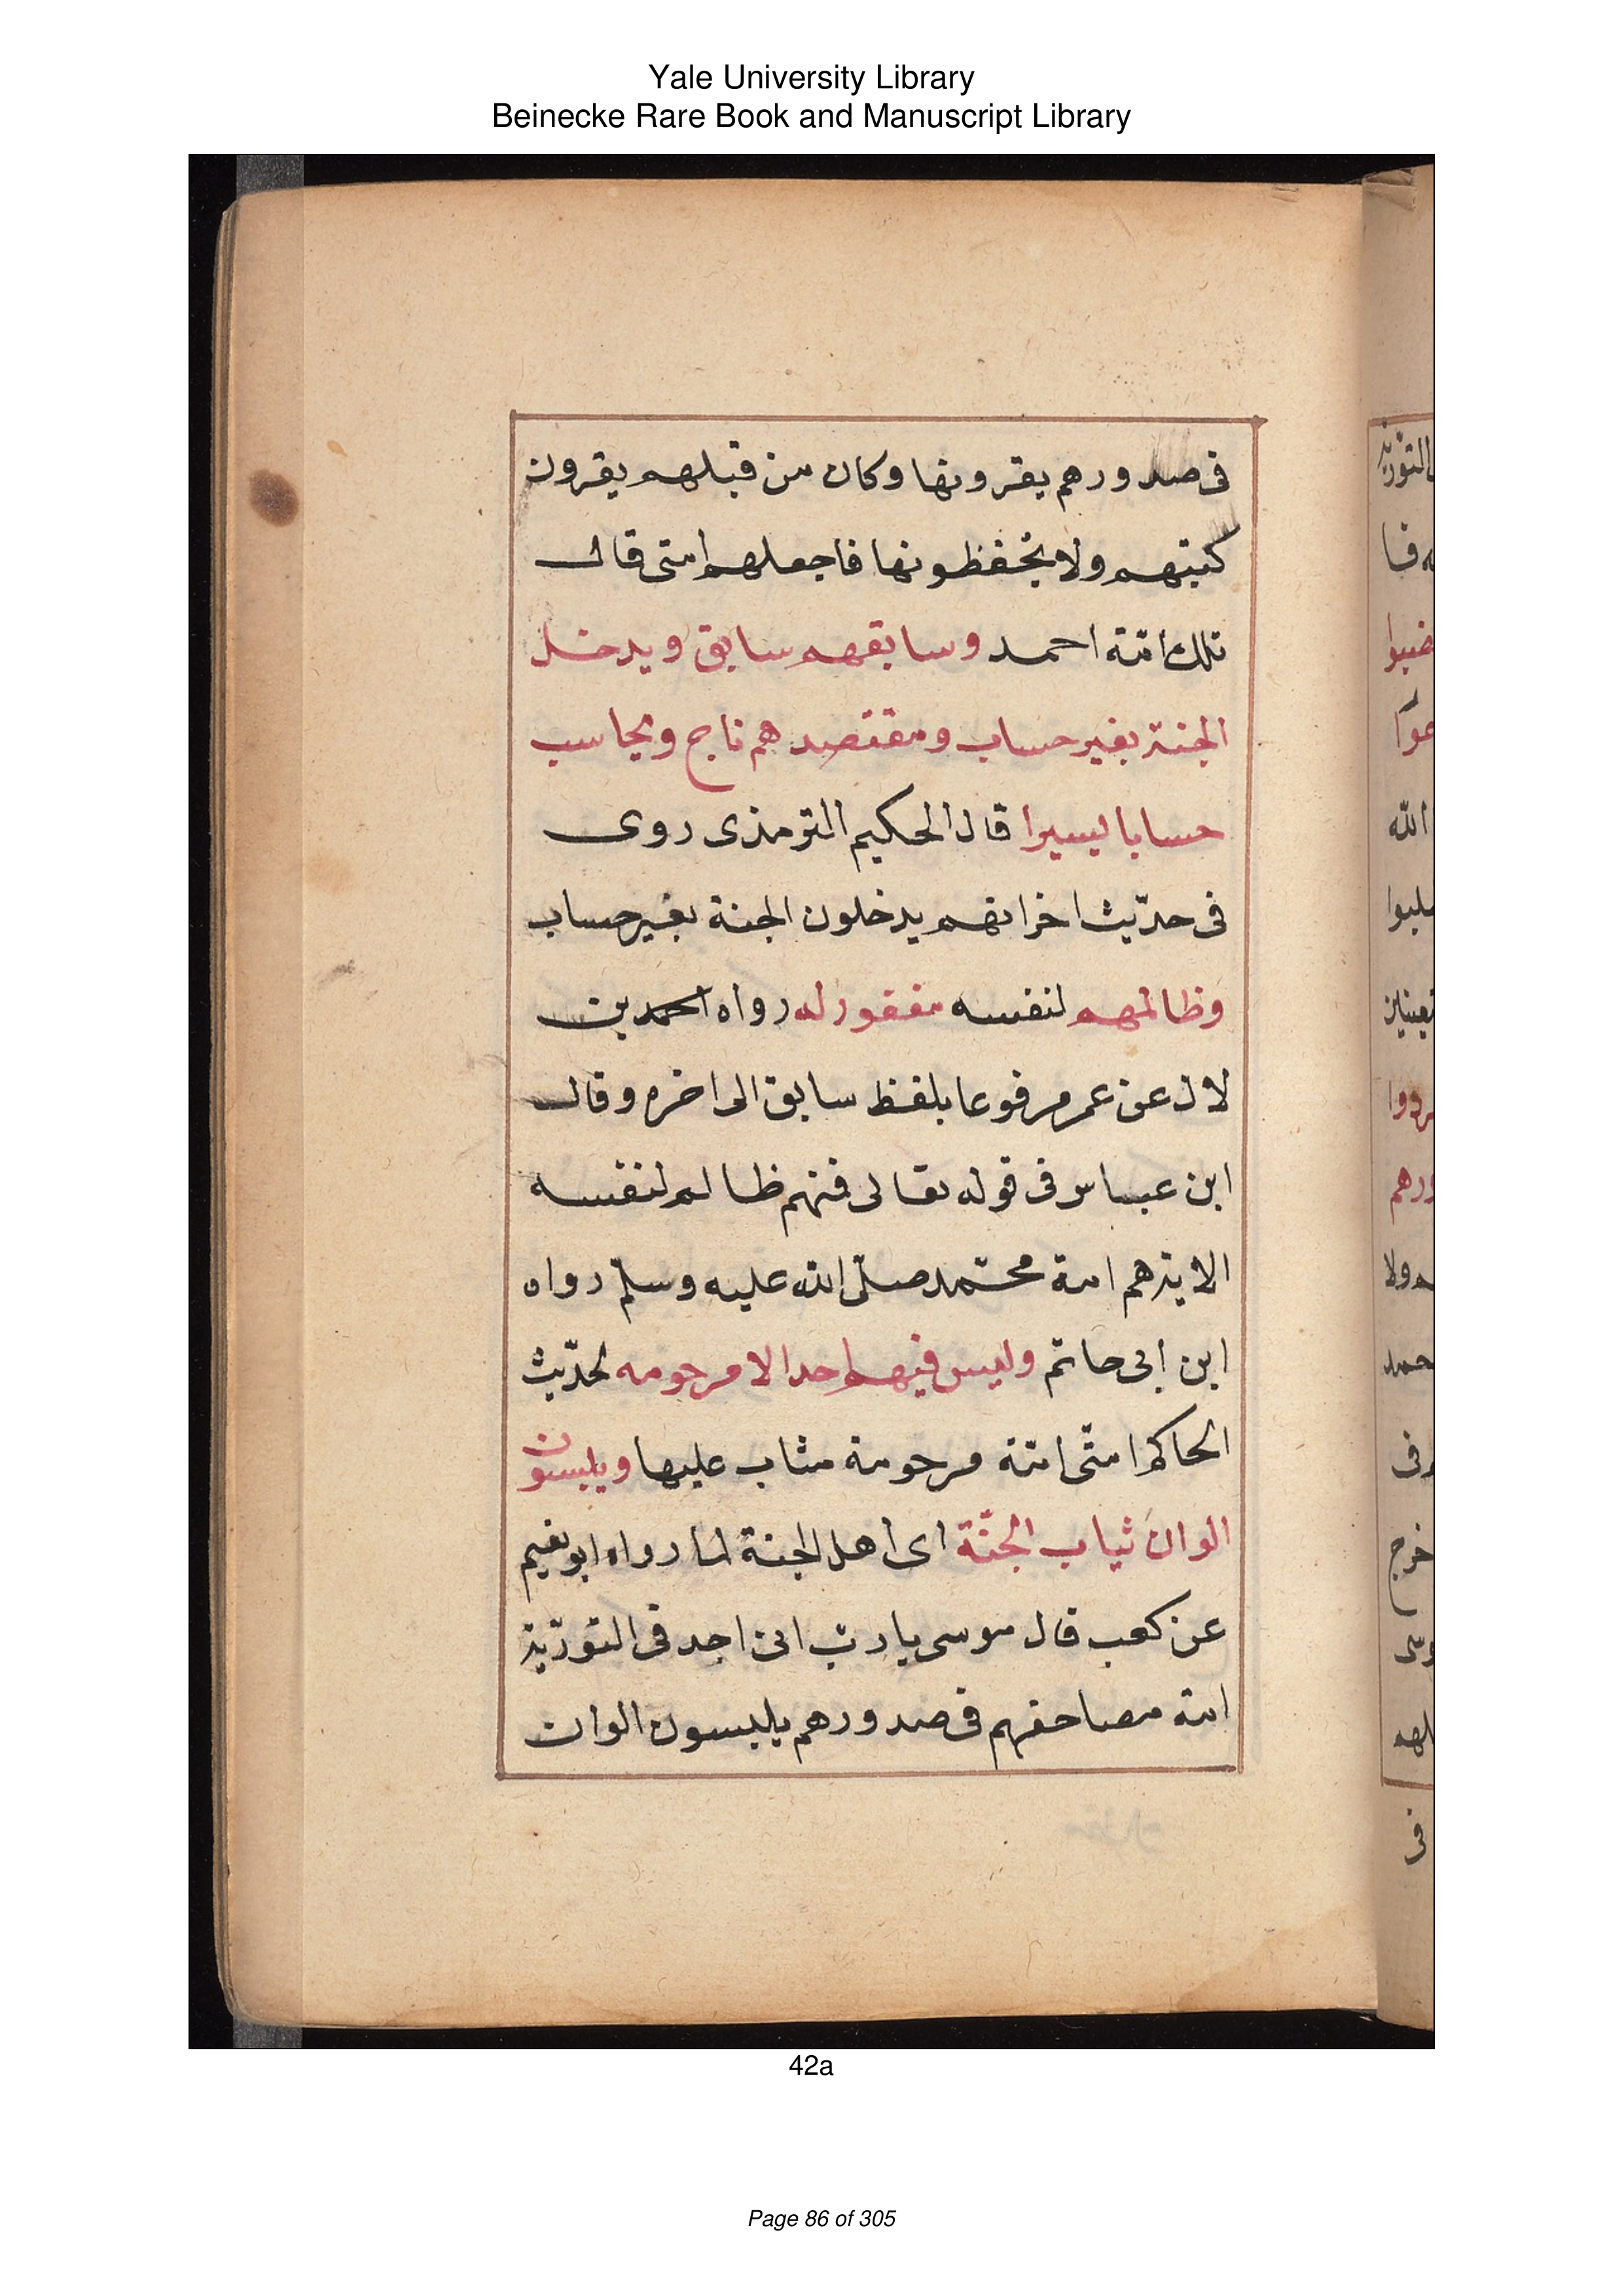 Yale University Library
Beinecke Rare Book and Manuscript Library
فى صدورهم يقرونها وكان من قبلهم يقرون
كتبتهم ولا يحفظونها فاجعلهم امتى قال
تلك امّة احمد وسابقهم سابق ويدخل
الجنة بغير حساب ومقتصدهم ناج ويحاسب
حسابا يسيرا قال الحكيم الترمذى روى
فى حدّيث اخر انهم يدخلون الجنة بغير حساب
وظالمهم لنفسه مغفور له رواه احمد بن
لال عن عمر مرفوعا بلفظ سابق الى اخره وقال
ابن عباس فى قوله تعالى فمنهم ظالم لنفسه
الاية هم امة محمّد صلّى الله عليه وسلّم رواه
ابن ابى حاتم وليس فيهم احد الا مرحومه لحدّيث
الحاكم امّتى امّة مرحومة مثاب عليها ويلبسون
الوان ثياب الجنّة اى اهل الجنة لما رواه ابو نعيم
عن كعب قال موسى يا ربّ انى اجد فى التورّية
امة مصاحفهم فى صدورهم يلبسون الوان
التورّية
الله
فى
42a
Page 86 of 305